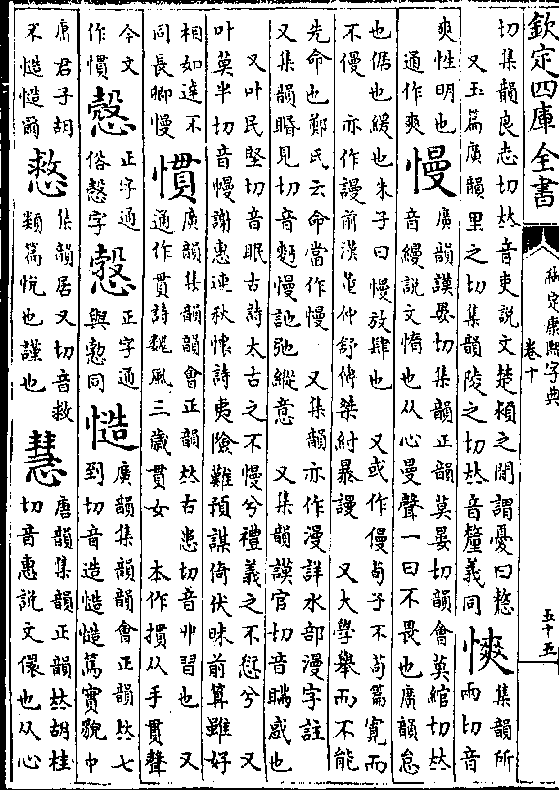 欽定四庫全書
御定康熙字典
卷十
五十五
切集韻良志切𠀤音吏說文楚潁之間謂憂曰㦒
又玉篇廣韻里之切集韻陵之切𠀤音釐義同
慡
集韻所
兩切音
爽性明也
通作爽
慢
廣韻謨晏切集韻正韻莫晏切韻會莫綰切𠀤
音縵說文惰也从心曼聲一曰不畏也廣韻怠
也倨也緩也朱子曰慢放肆也 又或作僈荀子不苟篇寬而
不僈 亦作謾前漢董仲舒傳桀紂暴謾 又大學舉而不能
先命也鄭氏云命當作慢 又集韻亦作漫詳水部漫字註
又集韻眠見切音麪慢訑弛縱意 又集韻謨官切音瞞惑也
又叶民堅切音眠古詩太古之不慢兮禮義之不愆兮 又
叶莫半切音幔謝惠連秋懷詩夷險難預謀倚伏昧前算雖好
相如達不
同長卿慢
慣
廣韻集韻韻會正韻𠀤古患切音丱習也 又
通作貫詩魏風三歲貫女 本作摜从手貫聲
今文
作慣
慤
正字通
俗愨字
愨
正字通
與慤同
慥
廣韻集韻韻會正韻𠀤七
到切音造慥慥篤實貌中
庸君子胡
不慥慥爾
慗
集韻居又切音救
類篇恱也謹也
慧
唐韻集韻正韻𠀤胡桂
切音惠說文儇也从心